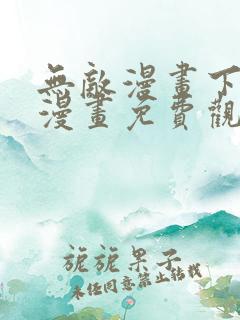 無敵漫畫下
漫畫免費觀
旎旎果子
未经同意禁止转载